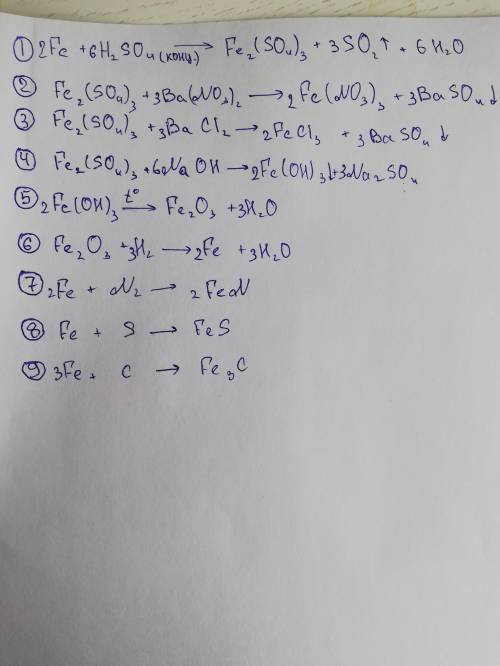 ① 2Fe + 6H₂SO₄ (конц.) → Fe₂(SO₄)₃ + 3SO₂↑ + 6H₂O
② Fe₂(SO₄)₃ + 3Ba(NO₃)₂ → 2Fe(NO₃)₃ + 3BaSO₄↓
③ Fe₂(SO₄)₃ + 3BaCl₂ → 2FeCl₃ + 3BaSO₄↓
④ Fe₂(SO₄)₃ + 6NaOH → 2Fe(OH)₃↓ + 3Na₂SO₄
⑤ 2Fe(OH)₃ t° → Fe₂O₃ + 3H₂O
⑥ Fe₂O₃ + 3H₂ → 2Fe + 3H₂O
⑦ 2Fe + N₂ → 2FeN
⑧ Fe + S → FeS
⑨ 3Fe + C → Fe₃C